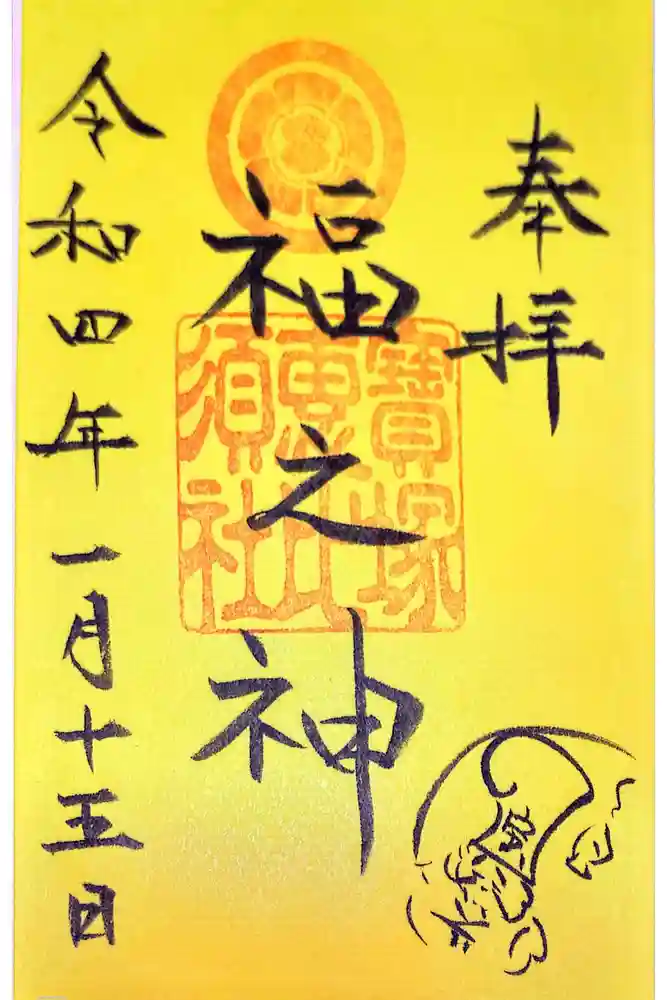 奉拝
福之神
寶塚
恵比
須社
令和四年一月十五日